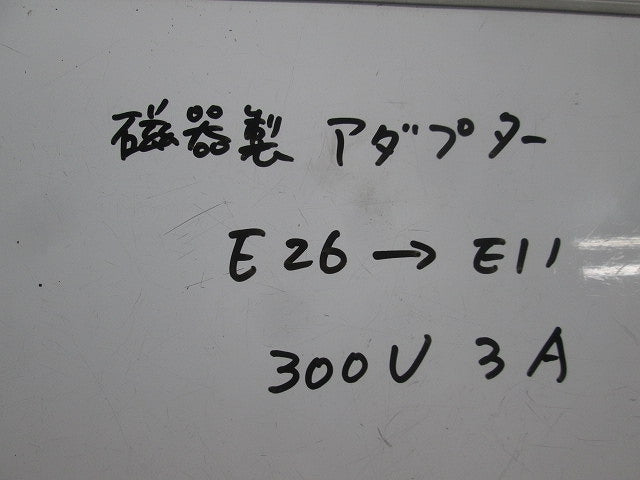 磁器製 アダプター
E26→E11
300V 3A